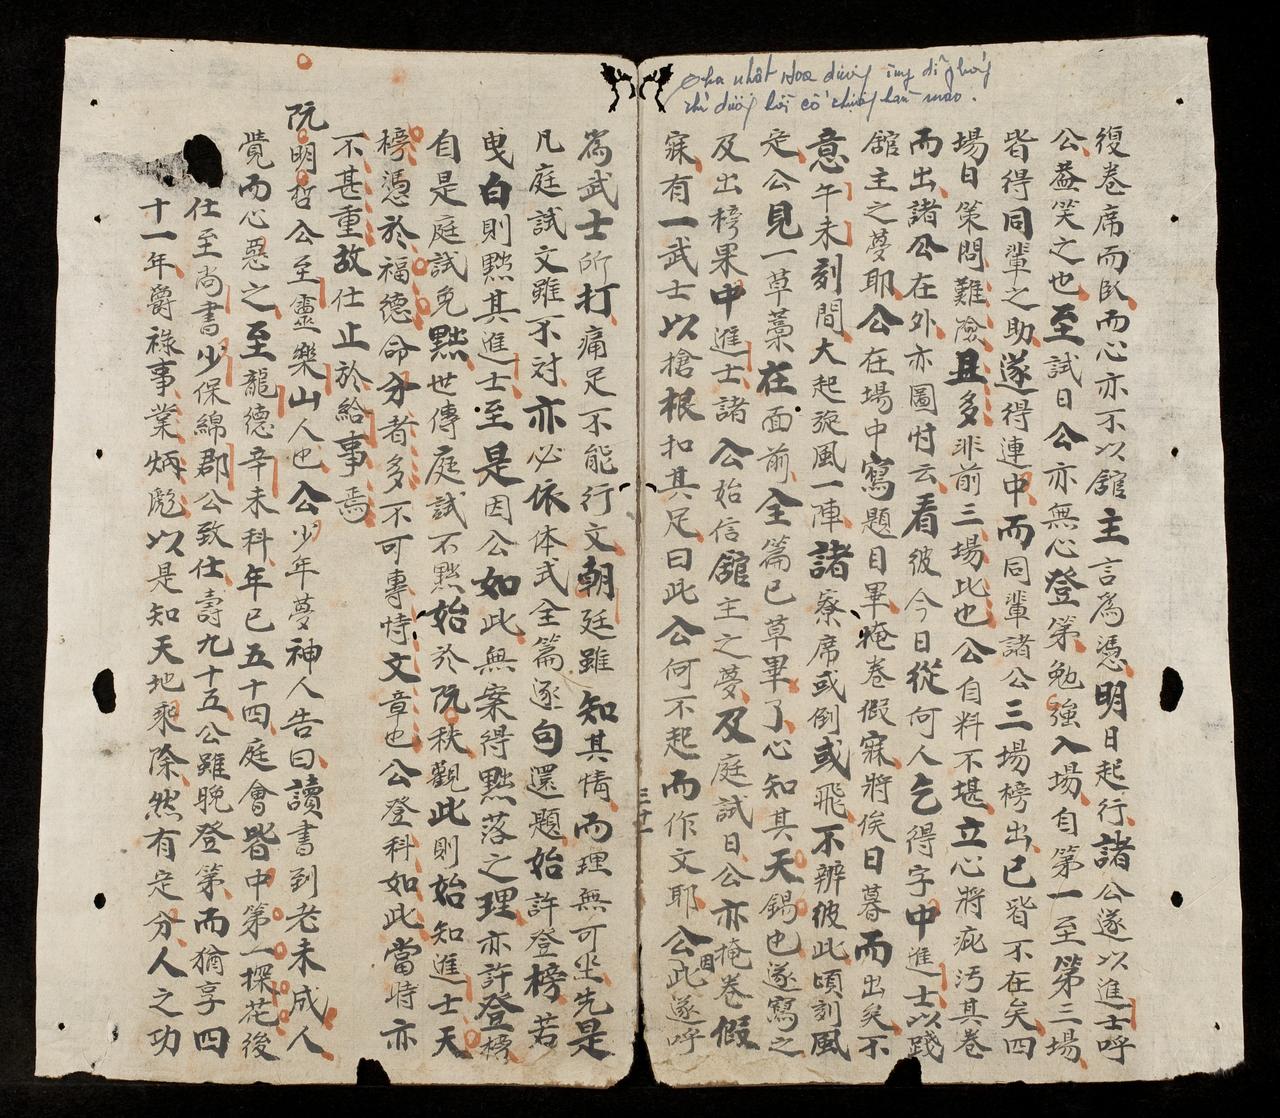 復卷席而臥而心亦不以舘主言為憑明日起行諸公遂以進士呼
公益笑之也至試日公亦無心登第勉強入場自第一至第三場
皆得同輩之助遂得連中而同輩諸公三場榜出已皆不在矣四
場日策問難澁且多非前三場比也公自料不堪立心將疵污其卷
而出諸公在外亦圖忖云看彼今日從何人乞得字中進士以踐
舘主之夢耶公在場中寫題目畢掩卷假寐將俟日暮而出矣不
意午未刻間大起旋風一陣諸寮席或倒或飛不辨彼此頃刻風
定公見一草藁在面前全篇已草畢了心知其天錫也遂寫之
及出榜果中進士諸公始信舘主之夢及庭試日公亦掩卷假
寐有一武士以搶根扣其足曰此公何不起而作文耶公因此遂呼
為武士所打痛足不能行文朝廷雖知其情而理無可坐先是
凡庭試文雖不对亦必依体式全篇逐句還題始許登榜若
曳白則黜其進士至是因公如此無案得黜落之理亦許登榜
自是庭試免黜世傳庭試不黜始於阮秩觀此則始知進士天
榜憑於福德命分者多不可專恃文章也公登科如此當時亦
不甚重故仕止於給事焉
阮明哲公至靈樂山人也公少年夢神人告曰讀書到老未成人
覺而心惡之至龍德辛未科年已五十四庭會皆中第一探花後
仕至尚書少保綿郡公致仕壽九十五公雖晚登第而猶享四
十一年爵祿事業炳彪以是知天地乘除然有定分人之功